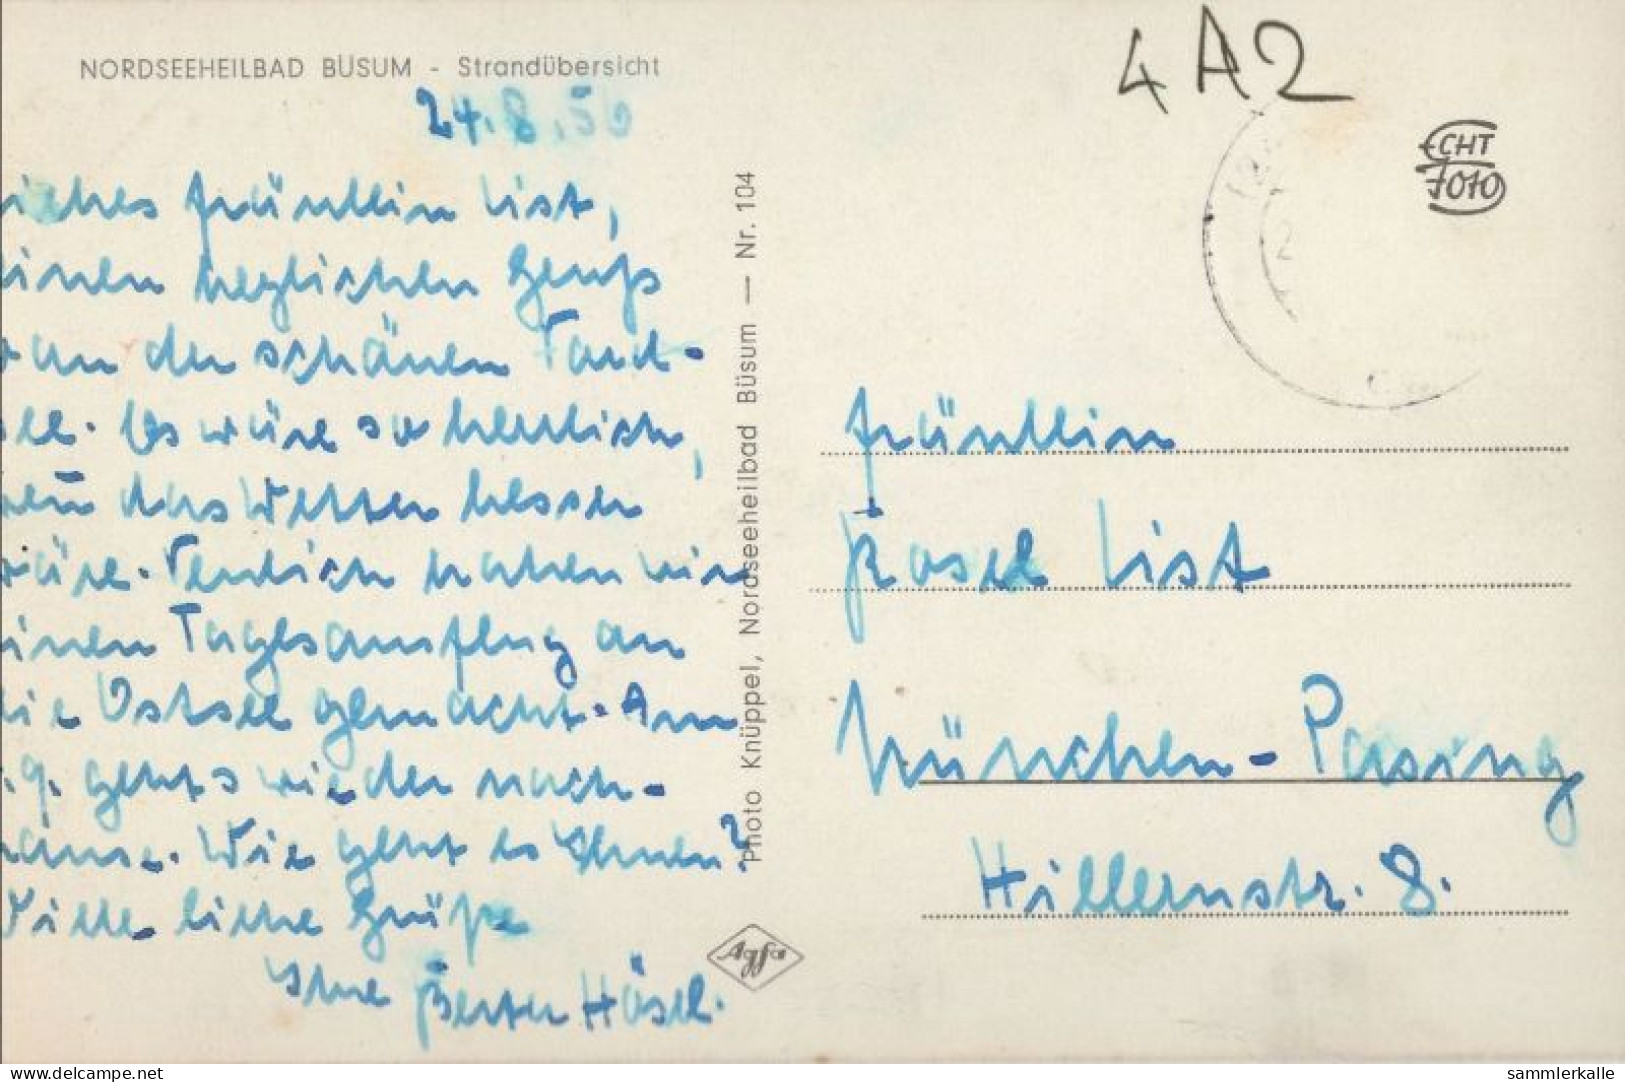 NORDSEEHEILBAD BÜSUM - Strandübersicht
24.8.56
iebes Fräulein List,
inen herzlichen Gruß
an der schönen Nord-
ee. Es wäre so herrlich,
wenn das Wetter besser
wäre. Neulich haben wir
inen Tagesausflug an
die Ostsee gemacht. Am
.9. gehts wieder nach-
hause. Wie geht es Ihnen?
Viele liebe Grüße
Ihre
Photo Knüppel, Nordseeheilbad Büsum — Nr. 104
Agfa
4 A2
ECHT
FOTO
Fräulein
Rosel List
München-Pasing
Hillernstr. 8.
www.delcampe.net
sammlerkalle